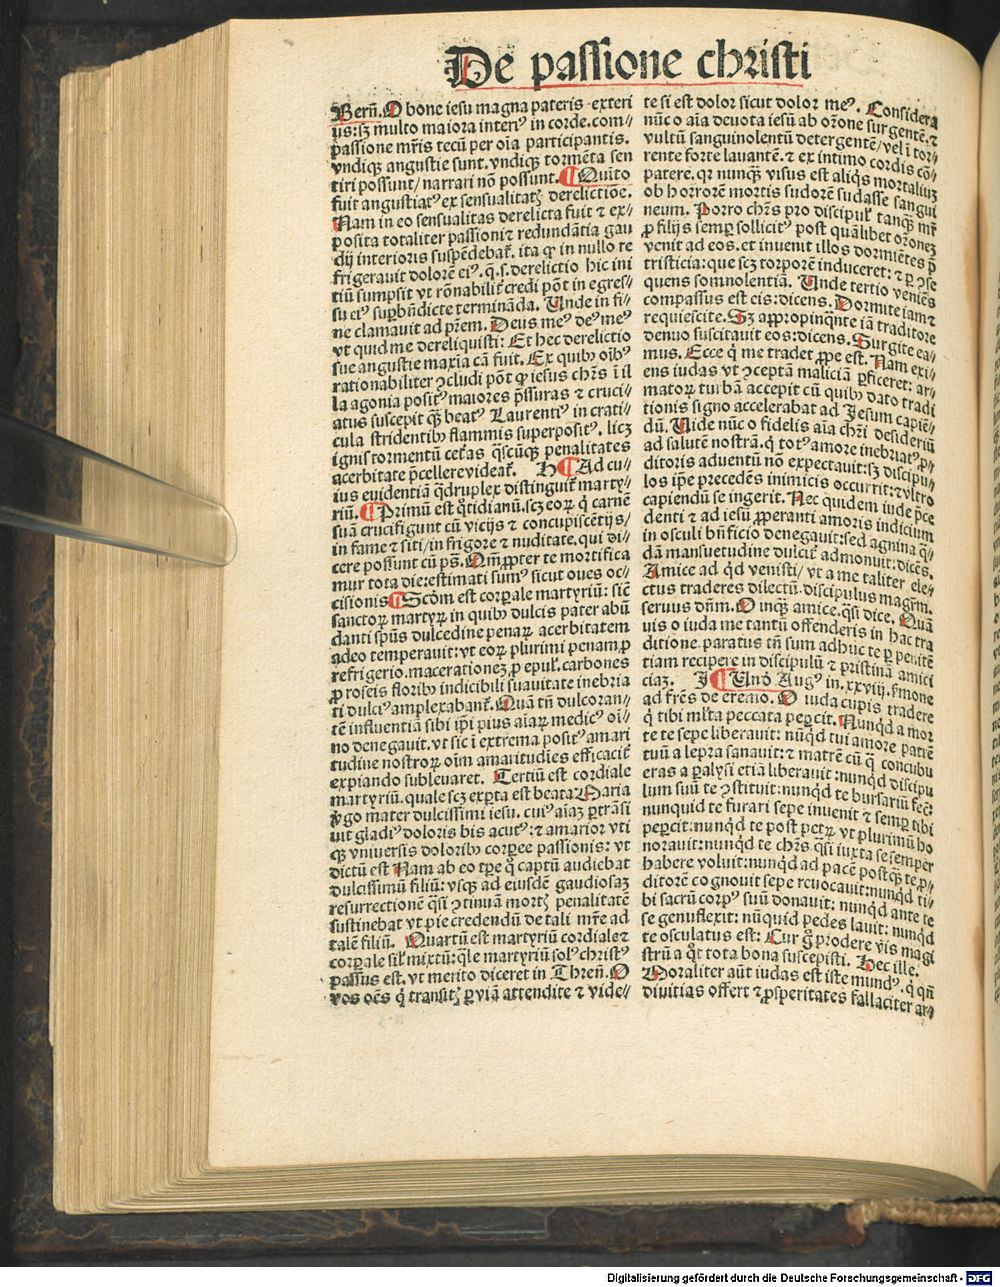 De passione christi
Berñ. O bone iesu magna pateris exteri
us: sꝫ multo maiora interiꝰ in corde. com//
passione mr̃is tecũ per oĩa participantis.
vndiqꝫ angustie sunt. vndiqꝫ tormẽta sen
tiri possunt/ narrari nõ possunt. ¶ Quĩto
fuit angustiatꝰ ex sensualitatꝭ derelictiõe.
Nam in eo sensualitas derelicta fuit ⁊ ex//
posita totaliter passioni⁊ redundãtia gau
dij interioris suspẽdebat̃. ita ꝙ in nullo re
frigerauit dolorẽ eiꝰ. q.s. derelictio hic ini
tiũ sumpsit vt rõnabilit̃ credi põt in egres//
su eiꝰ suꝑbñdicte terminãda. Unde in fi//
ne clamauit ad pr̃em. Deus meꝰ deꝰ meꝰ
vt quid me dereliquisti: Et hec derelictio
sue angustie maxĩa cã fuit. Ex quibꝰ oĩbꝰ
rationabiliter ꝯcludi põt ꝙ iesus chr̃s ĩ il
la agonia positꝰ maiores p̃ssuras ⁊ cruci//
atus suscepit qꝫ beatꝰ Laurentiꝰ in crati//
cula stridentibꝰ flammis superpositꝰ. licꝫ
ignis tormentũ cet̃as q̃scũqꝫ penalitates
acerbitate p̃cellere videat̃. H ¶ Ad cu//
ius euidentiã q̃druplex distinguit̃ marty//
riũ. ¶ Primũ est q̊tidianũ. scꝫ eoꝝ q̇ carnẽ
suã crucifigunt cũ vicijs ⁊ concupiscẽtijs/
in fame ⁊ siti/ in frigore ⁊ nuditate. qui di//
cere possunt cũ ps̃. Qm̃ ꝓpter te mortifica
mur tota die: estimati sumꝰ sicut oues oc//
cisionis ¶ Scd̃m est corꝑale martyriũ: sic̃
sanctoꝝ martyꝝ in quibꝰ dulcis pater abũ
danti spũs dulcedine penaꝝ acerbitatem
adeo temperauit: vt eoꝝ plurimi penam ꝓ
refrigerio. macerationeꝫ ꝓ epul̃. carbones
ꝓ roseis floribꝰ indicibili suauitate inebria
ti dulciꝰ amplexabant̃. Quã tñ dulcoran//
tẽ influentiã sibi ip̃i pius aĩaꝝ medicꝰ oĩ//
no denegauit. vt sic ĩ extrema positꝰ amari
tudine nostroꝝ oĩm amaritudĩes efficacit̃
expiando subleuaret. Tertiũ est cordiale
martyriũ. quale scꝫ exꝑta est beata Maria
ṽgo mater dulcissimi iesu. cuiꝰ aĩaꝫ ꝑtrãsi
uit gladiꝰ doloris bis acutꝰ: ⁊ amarior vti
qꝫ vniuersis doloribꝰ corꝑee passionis: vt
dictũ est Nam ab eo tꝑe q̊ captũ audiebat
dulcissimũ filiũ: vsqꝫ ad eiusdẽ gaudiosaꝫ
resurrectionẽ q̃si ꝯtinuã mortꝭ penalitatẽ
sustinebat vt pie credendũ de tali mr̃e ad
talẽ filiũ. Quartũ est martyriũ cordiale⁊
corꝑale sil̃ mixtũ: q̃le martyriũ solꝰ christꝰ
passus est. vt merito diceret in Threñ. O
vos oẽs q̇ transitꝭ ꝑ viã attendite ⁊ vide//
te si est dolor sicut dolor meꝰ. Considera
nũc o aĩa deuota iesũ ab or̃one surgentẽ. ⁊
vultũ sanguinolentũ detergentẽ/ vel ĩ tor//
rente forte lauantẽ. ⁊ ex intimo cordis cõ//
patere. qr nunqꝫ visus est aliqͥs mortaliuꝫ
ob horrorẽ mortis sudorẽ sudasse sangui
neum. Porro chr̃s pro discipul̃ tanqꝫ mr̃
ꝓ filijs semꝑ sollicitꝰ post quãlibet or̃oneꝫ
venit ad eos. et inuenit illos dormiẽtes p̃
tristicia: que scꝫ torporẽ induceret: ⁊ ꝑ ꝯse
quens somnolentiã. Unde tertio veniẽs
compassus est eis: dicens. Dormite iam ⁊
requiescite. Sꝫ appropinq̃nte iã traditore
denuo suscitauit eos: dicens. Surgite ea//
mus. Ecce q̇ me tradet ꝓpe est. Nam exi//
ens iudas vt ꝯceptã maliciã ꝑficeret: ar//
matoꝝ turbã accepit cũ quibꝰ dato tradi
tionis signo accelerabat ad Jesum capiẽ//
dũ. Uide nũc o fidelis aĩa chr̃i desideriũ
ad salutẽ nostrã. q̇ totꝰ amore inebriatꝰ ꝓ//
ditoris aduentũ nõ expectauit: sꝫ discipu//
los ip̃e precedẽs inimicis occurrit: ⁊ vltro
capiendũ se ingerit. Nec quidem iude p̃ce
denti ⁊ ad iesũ ꝓperanti amoris indicium
in osculi bñficio denegauit: sed agnina q̃//
dã mansuetudine dulcit̃ admonuit: dicẽs.
Amice ad qͥd venisti/ vt a me taliter ele//
ctus traderes dilectũ: discipulus magr̃m.
seruus dñm. O inqꝫ amice. q̃si dice. Quã
uis o iuda me tantũ offenderis in hac tra
ditione. paratus tñ sum adhuc te ꝑ penitẽ
tiam recipere in discipulũ ⁊ pristinã amici
ciaꝫ. I ¶ Unð Augꝰ in. xxviij. sermone
ad fr̃es de eremo. O iuda cupis tradere
q̇ tibi ml̃ta peccata peꝑcit. Nunqͥd a mor
te te sepe liberauit: nũqͥd tui amore patrẽ
tuũ a lepra sanauit: ⁊ matrẽ cũ q̃ concubu
eras a ꝑalysi etiã liberauit: nunqͥd discipu
lum suũ te ꝯstituit: nunqͥd te bursariũ fec̃:
nunquid te furari sepe inuenit ⁊ semꝑ tibi
peꝑcit: nunqͥd te post petꝝ vt plurimũ ho
norauit: nunqͥd te chr̃s q̃si iuxta se semper
habere voluit: nunqͥd ad pacẽ postqꝫ te ꝓ//
ditorẽ cognouit sepe reuocauit: nunqͥd ti//
bi sacrũ corpꝰ suũ donauit: nunqͥd ante te
se genuflexit: nũquid pedes lauit: nunqͥd
te osculatus est: Cur g̊ prodere vis magi
strũ a q̊ tot tota bona suscepisti. Hec ille.
Moraliter aũt iudas est iste mundꝰ. q̇ qñ
diuitias offert ⁊ ꝓsperitates fallaciter ar//
Digitalisierung gefördert durch die Deutsche Forschungsgemeinschaft - DFG